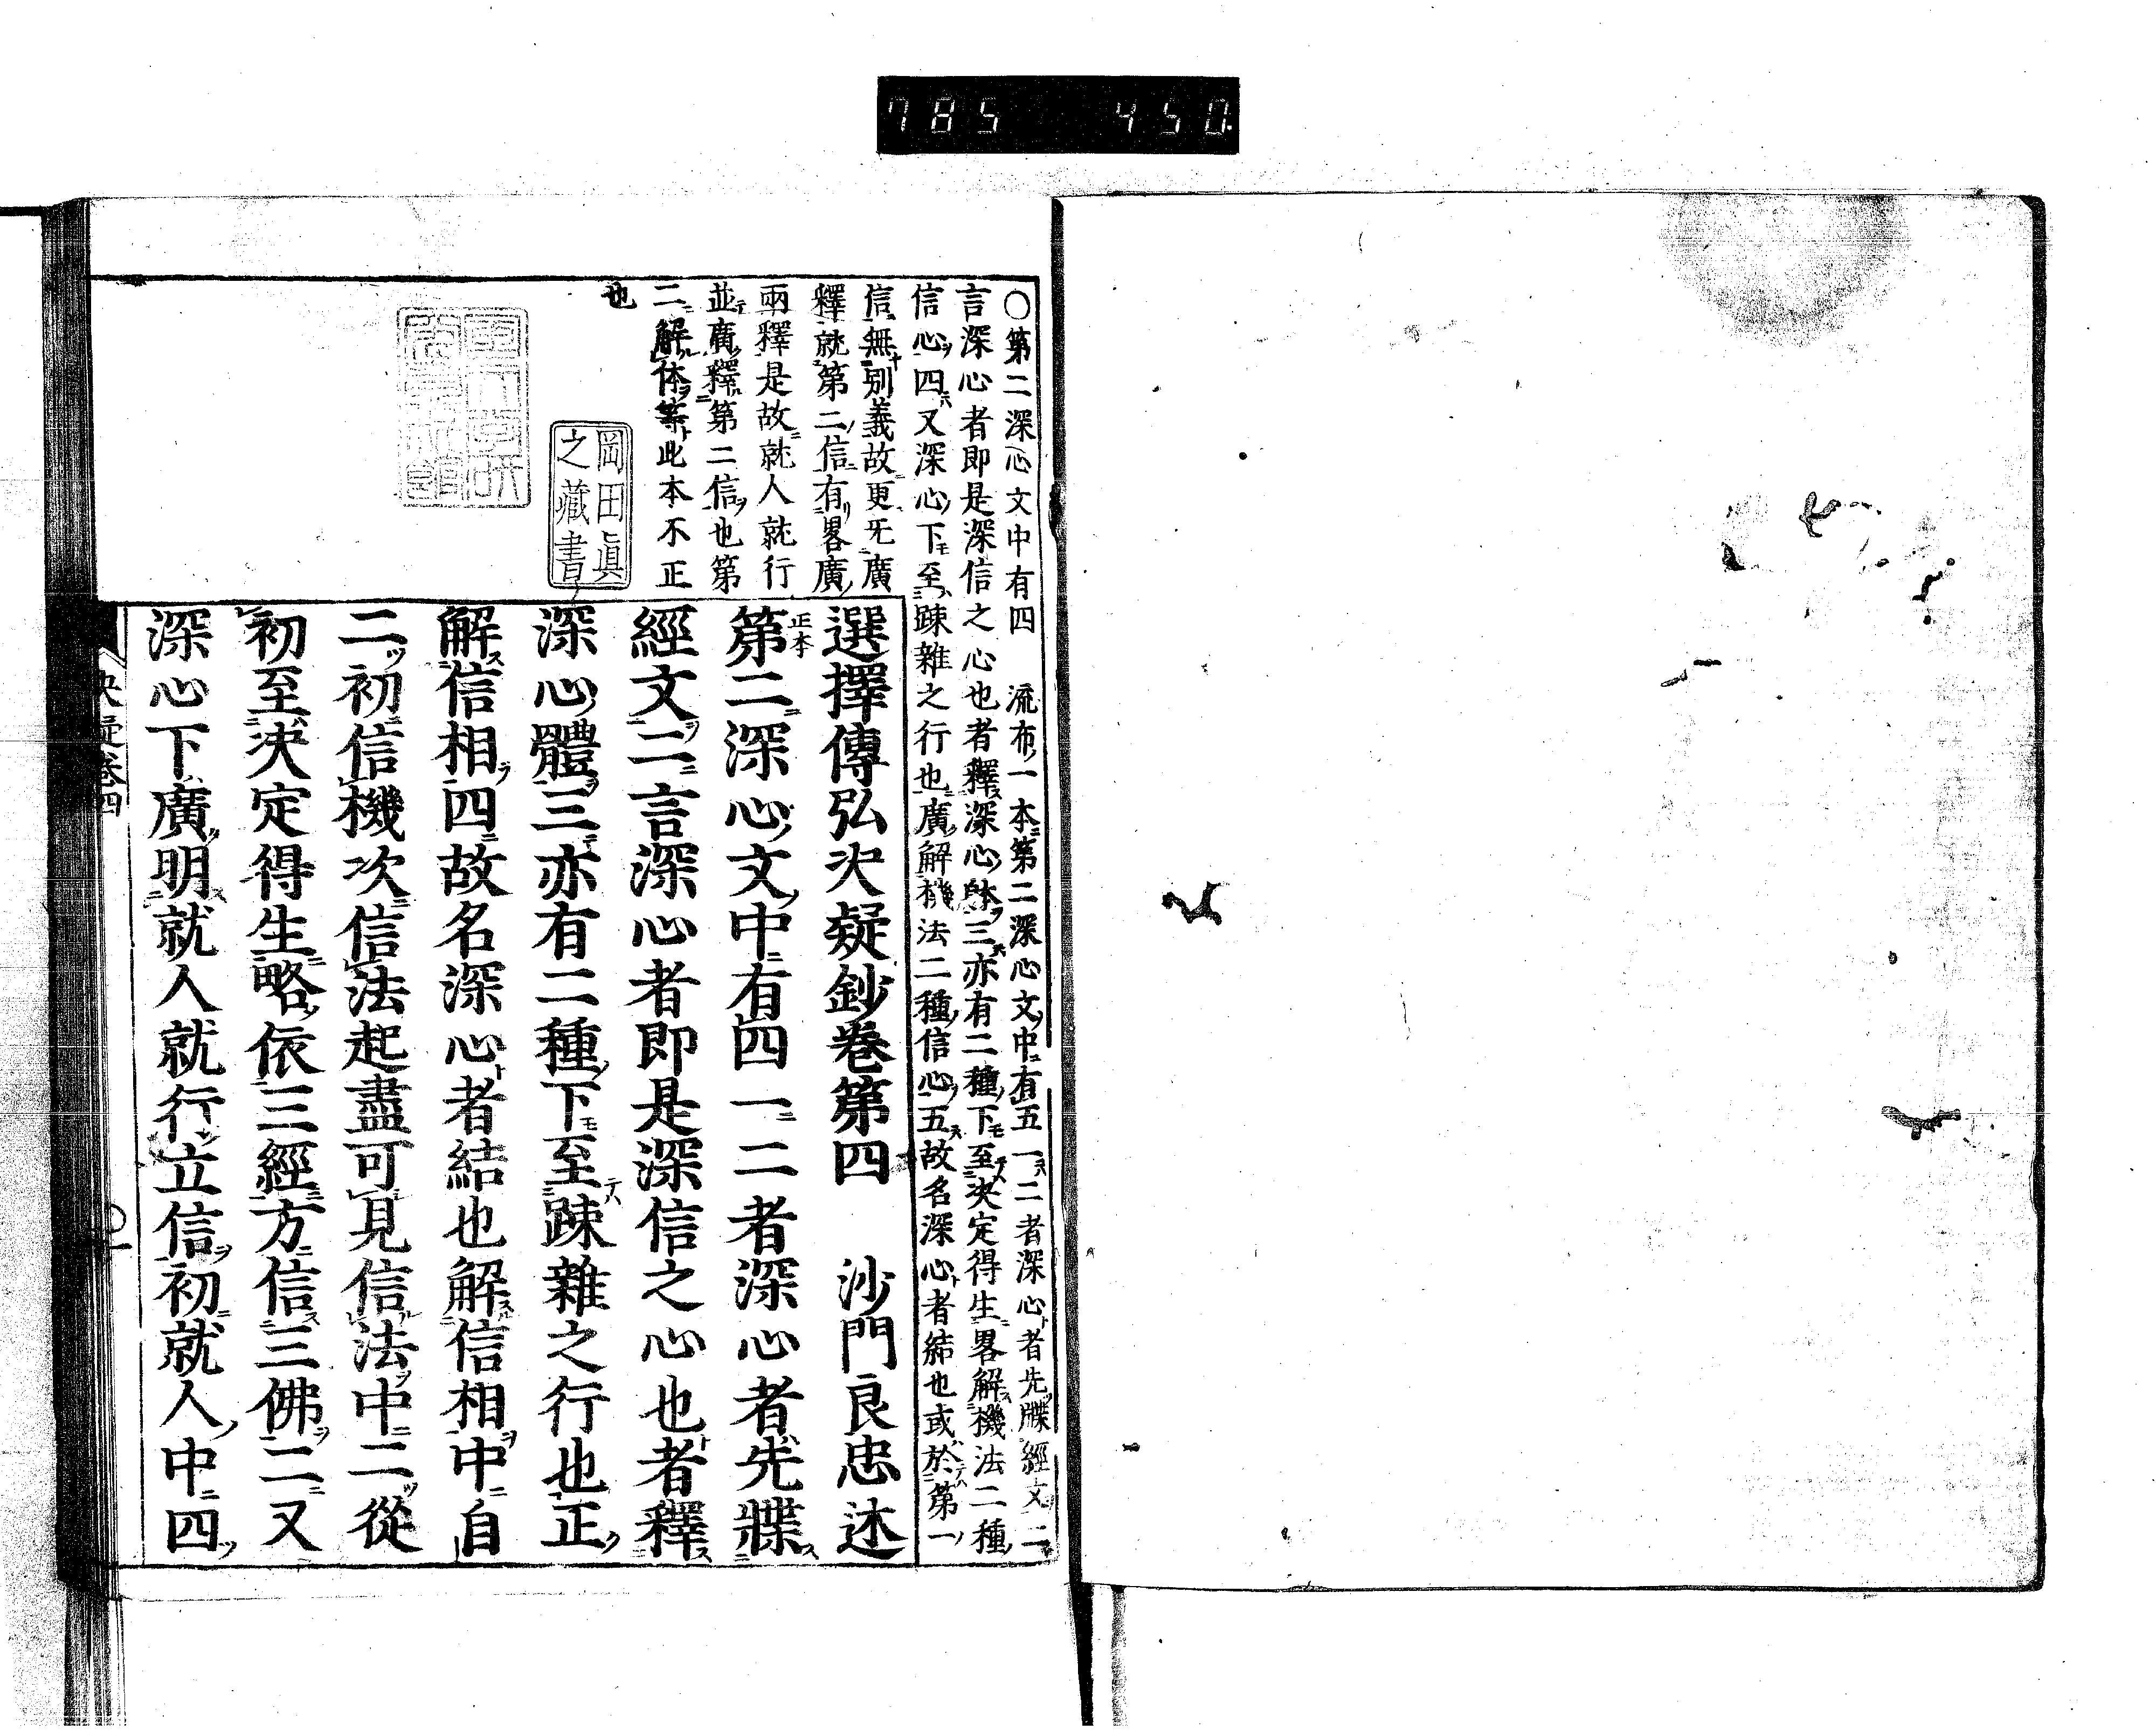 785 450
〇第二深心文中有四 流布一本第二深心文中有五一二者深心者先牒經文二
言深心者即是深信之心也者釋深心躰三亦有二種下至決定得生畧解機法二種
信心四又深心下至踈雜之行也廣解機法二種信心五故名深心者結也或於第一
信無別義故更无廣
釋就第二信有畧廣
兩釋是故就人就行
並廣釋第二信也第
二解体等此本不正
也
岡田眞
之藏書
選擇傳弘决疑鈔卷第四 沙門良忠述
正本
第二深心文中有四一二者深心者先牒
經文二言深心者即是深信之心也者釋
深心體三亦有二種下至踈雜之行也正
解信相四故名深心者結也解信相中自
二初信機次信法起盡可見信法中二從
初至决定得生略依三經方信三佛二又
深心下廣明就人就行立信初就人中四
决疑卷四